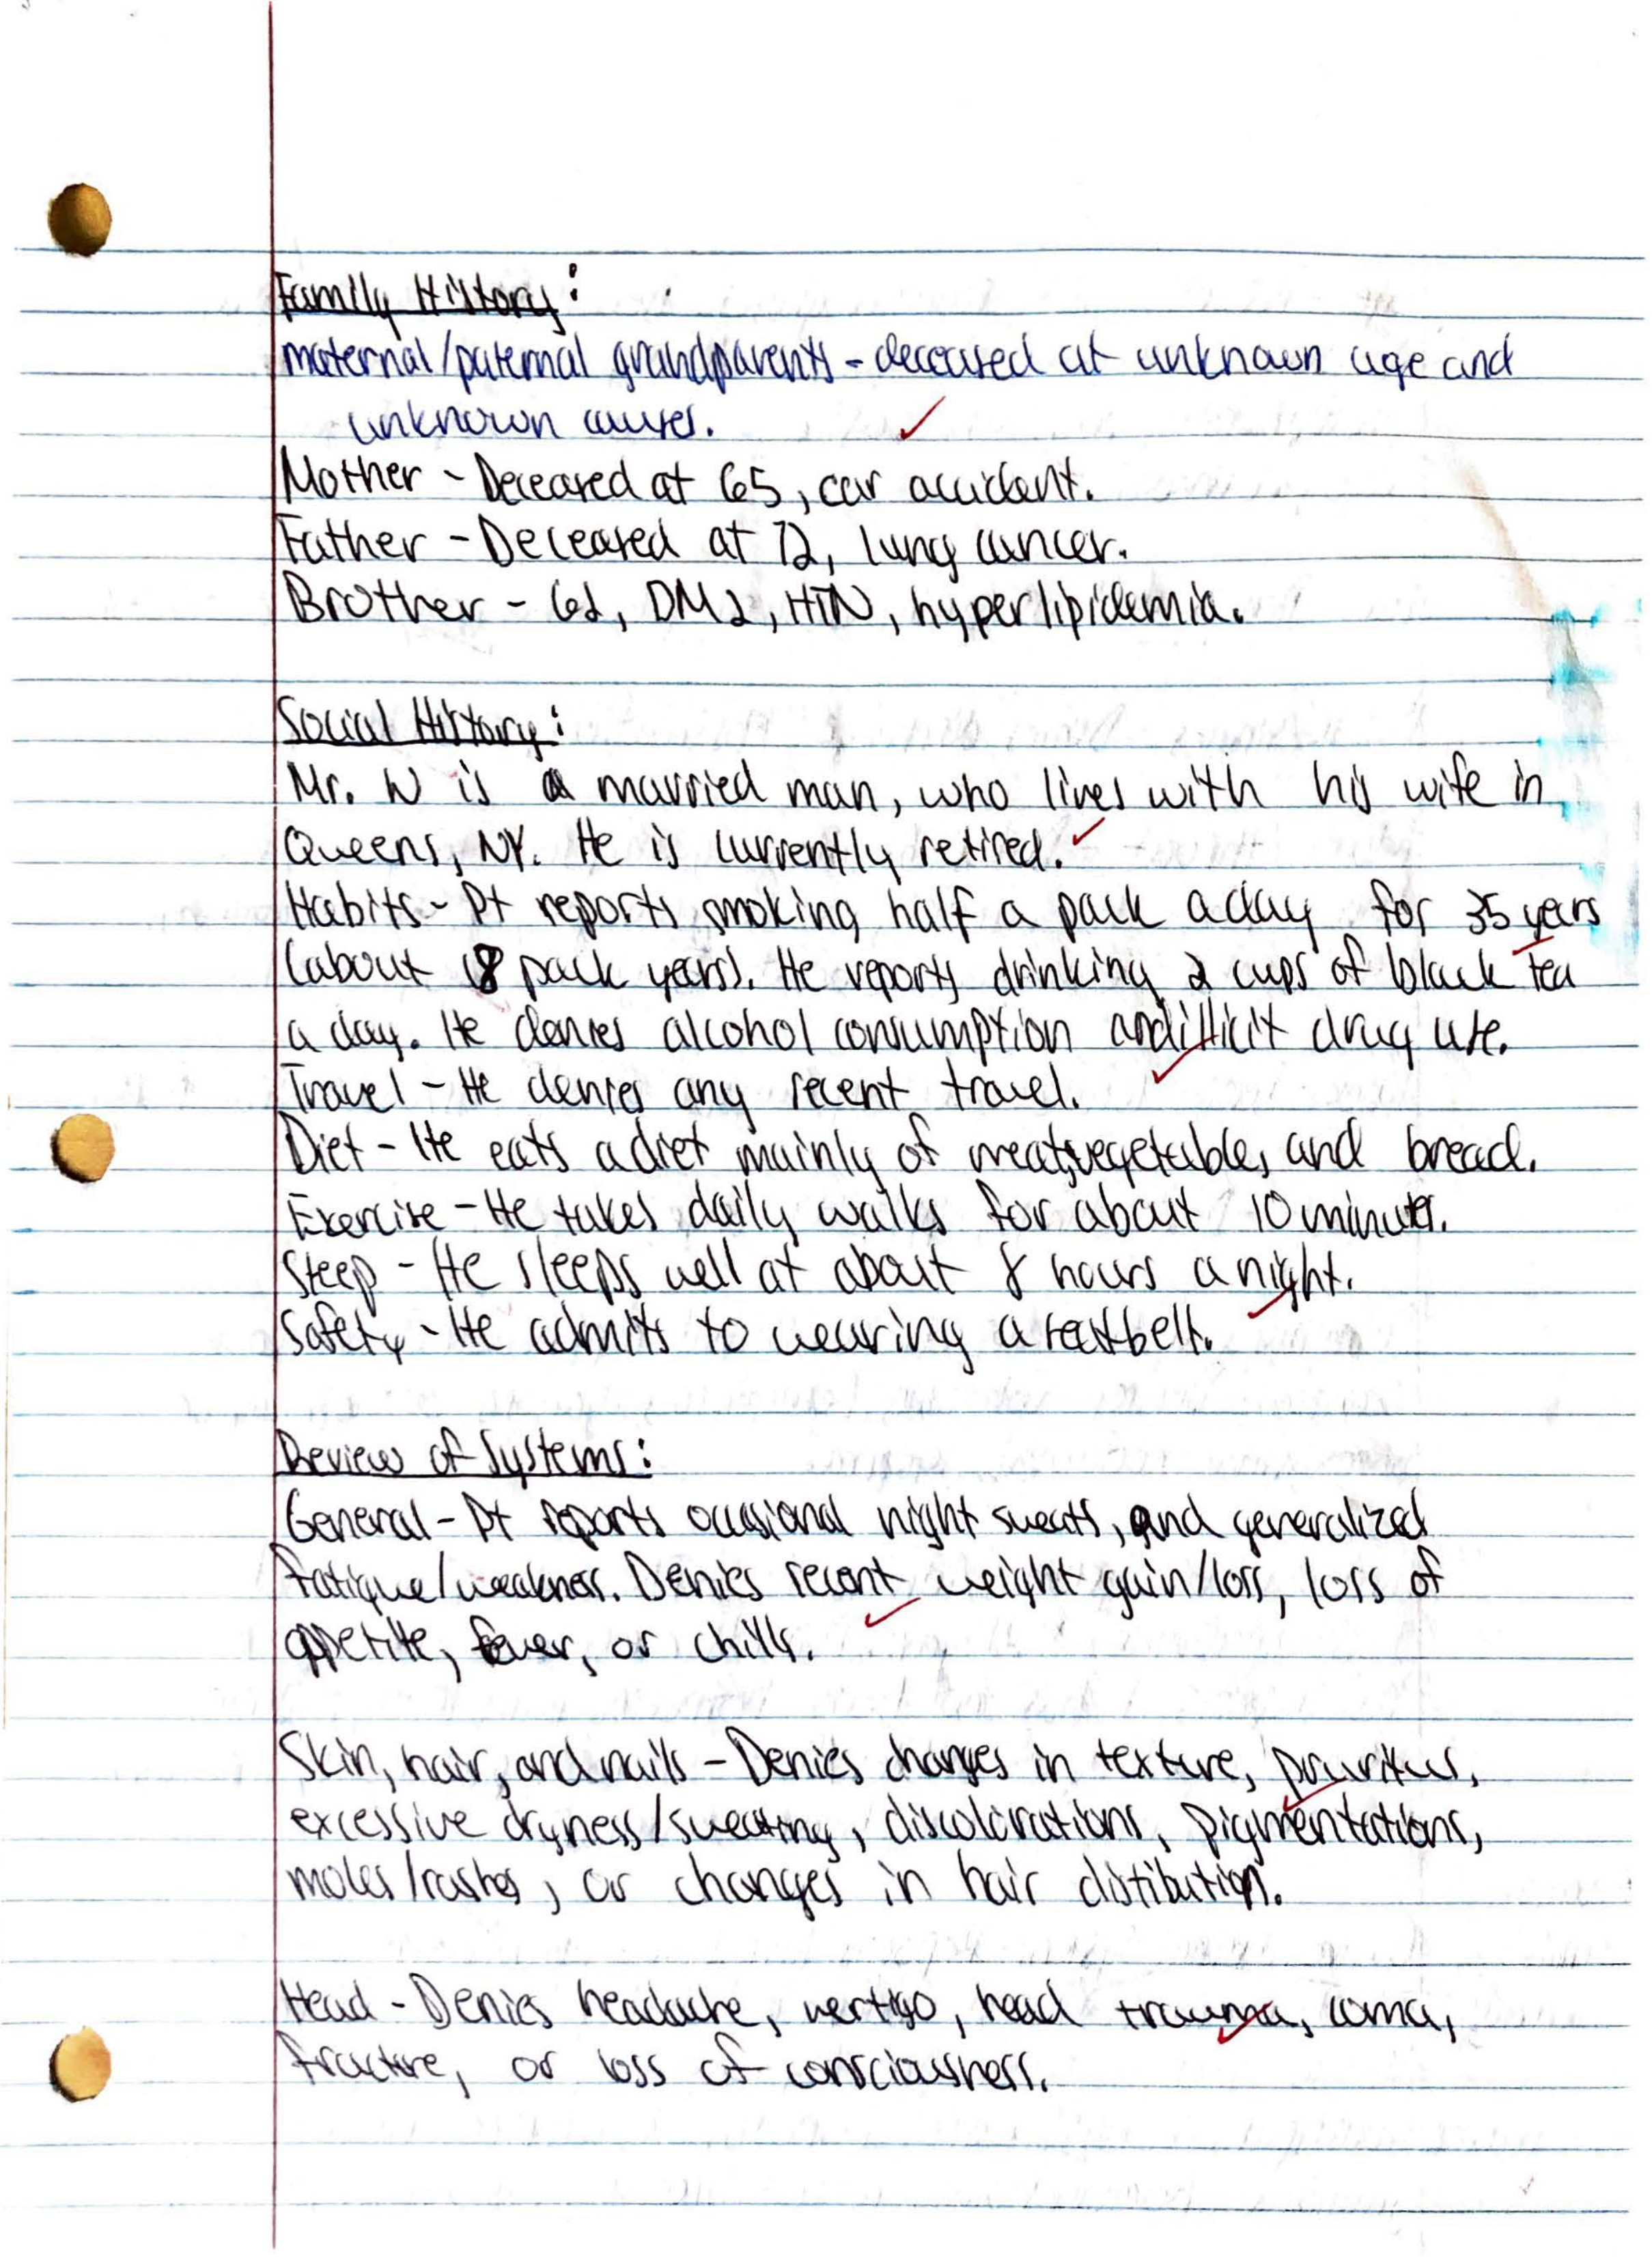 Family History:
maternal/paternal grandparents - deceased at unknown age and
unknown causes.
Mother - Deceased at 65, car accident.
Father - Deceased at 72, lung cancer.
Brother - 62, DM2, HTN, hyperlipidemia.
Social History:
Mr. W is a married man, who lives with his wife in
Queens, NY. He is currently retired.
Habits - Pt reports smoking half a pack a day for 35 years
(about 18 pack years). He reports drinking 2 cups of black tea
a day. He denies alcohol consumption and illicit drug use.
Travel - He denies any recent travel.
Diet - He eats a diet mainly of meats, vegetables, and bread.
Exercise - He takes daily walks for about 10 minutes.
Sleep - He sleeps well at about 8 hours a night.
Safety - He admits to wearing a seatbelt.
Review of Systems:
General - Pt reports occasional night sweats, and generalized
fatigue/weakness. Denies recent weight gain/loss, loss of
appetite, fever, or chills.
Skin, hair, and nails - Denies changes in texture, pruritus,
excessive dryness/sweating, discolorations, pigmentations,
moles/rashes, or changes in hair distibution.
Head - Denies headache, vertigo, head trauma, coma,
fracture, or loss of consciousness.